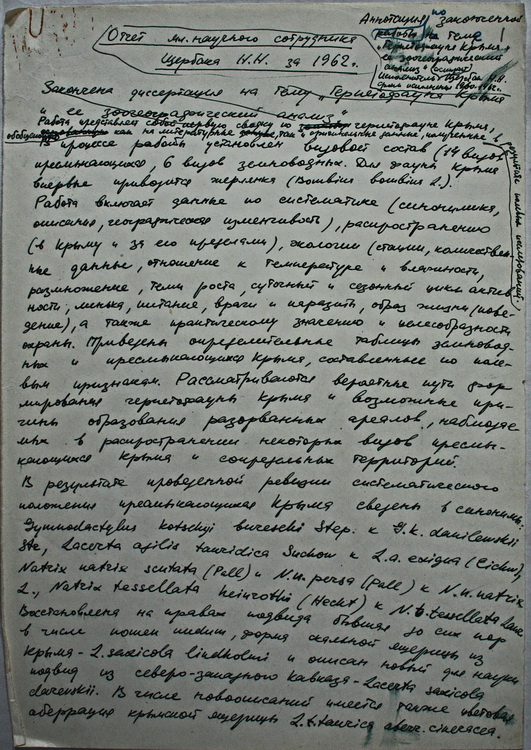 Аннотация по законченной
работы на тему !
"Герпетофауна Крыма,
ее зоогеографический
анализ"
Исполнитель Щербак Н.Н.
Отчет мл. научного сотрудника
Щербака Н.Н. за 1962 г.
Закончена диссертация на тему "Герпетофауна Крыма
и ее зоогеографический анализ"
Работа представляет собой первую сводку по герпетофауне Крыма,
обобщающую как литературные, так и оригинальные данные, полученные в
результате полевых исследований.
процессе работы установлен видовой состав (14 видов
пресмыкающихся, 6 видов земноводных. Для фауны Крыма
впервые приводится жерлянка (Bombina bombina L.).
Работа включает данные по систематике (синонимика,
описание, географическая изменчивость), распространению
(в Крыму и за его пределами), экологии (стации, количествен-
ные данные, отношение к температуре и влажности,
размножение, темп роста, суточный и сезонный цикл актив-
ности, линька, питание, враги и паразиты, образ жизни (пове-
дение), а также практическому значению и целесообразность
охраны. Приведены определительные таблицы земновод-
ных и пресмыкающихся Крыма, составленные по но-
вым признакам. Рассматриваются вероятные пути фор-
мирования герпетофауны Крыма и возможные при-
чины образования разорванных ареалов, наблюдае-
мых в распространении некоторых видов пресмы-
кающихся Крыма и сопредельных территорий.
В результате проведенной ревизии систематического
положения пресмыкающихся Крыма сведены в синонимы:
Gymnodactylus kotschyi bureschi Step. к G.k. danilewskii
Str., Lacerta agilis taurida Suchow к L.a. exigua (Eichw.)
Natrix natrix scutata (Pall) и N.n. persa (Pall) к N.n. natrix
L., Natrix tessellata heinrothi (Hecht) к N.t. tessellata Laur.
Восстановлена на правах подвида бывшая до сих пор
в числе номен нудум, форма скальной ящерицы из
Крыма - L. saxicola lindholmi и описан новый для науки
подвид из северо-западного Кавказа - Lacerta saxicola
darevskii. В числе новоописаний имеется также цветовая
аберрация крымской ящерицы L.t. taurica aberr. cineracea.